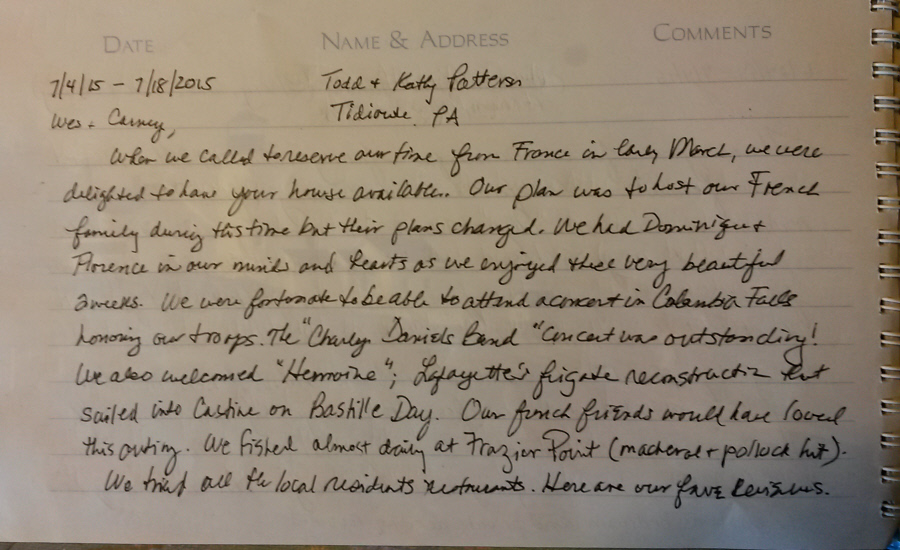 DATE NAME & ADDRESS COMMENTS
7/4/15 - 7/18/2015 Todd + Kathy Patterson
Wes + Carney, Tidioute, PA
When we called to reserve our time from France in early March, we were
delighted to have your house available.. Our plan was to host our French
family during this time but their plans changed. We had Dominique +
Florence in our minds and hearts as we enjoyed these very beautiful
2 weeks. We were fortunate to be able to attend a concert in Columbia Falls
honoring our troops. The "Charley Daniels Band" concert was outstanding!
We also welcomed "Hermoine"; Lafayette's frigate reconstruction that
sailed into Castine on Bastille Day. Our french friends would have loved
this outing. We fished almost daily at Frazier Point (macheral + pollock hit).
We tried all the local residents restaurants. Here are our fave